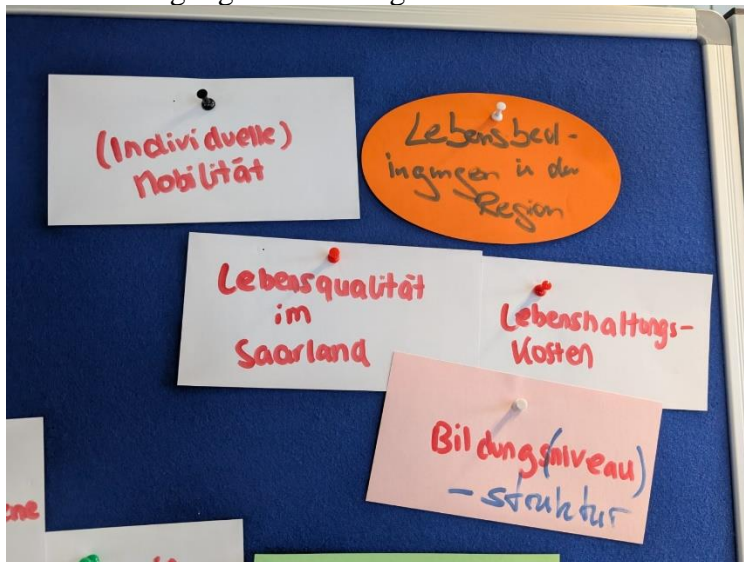 (Individuelle)
Mobilität
Lebensbed-
ingungen in der
Region
Lebensqualität
im
Saarland
Lebenshaltungs-
kosten
Bildungs(niveau)
- struktur
ene